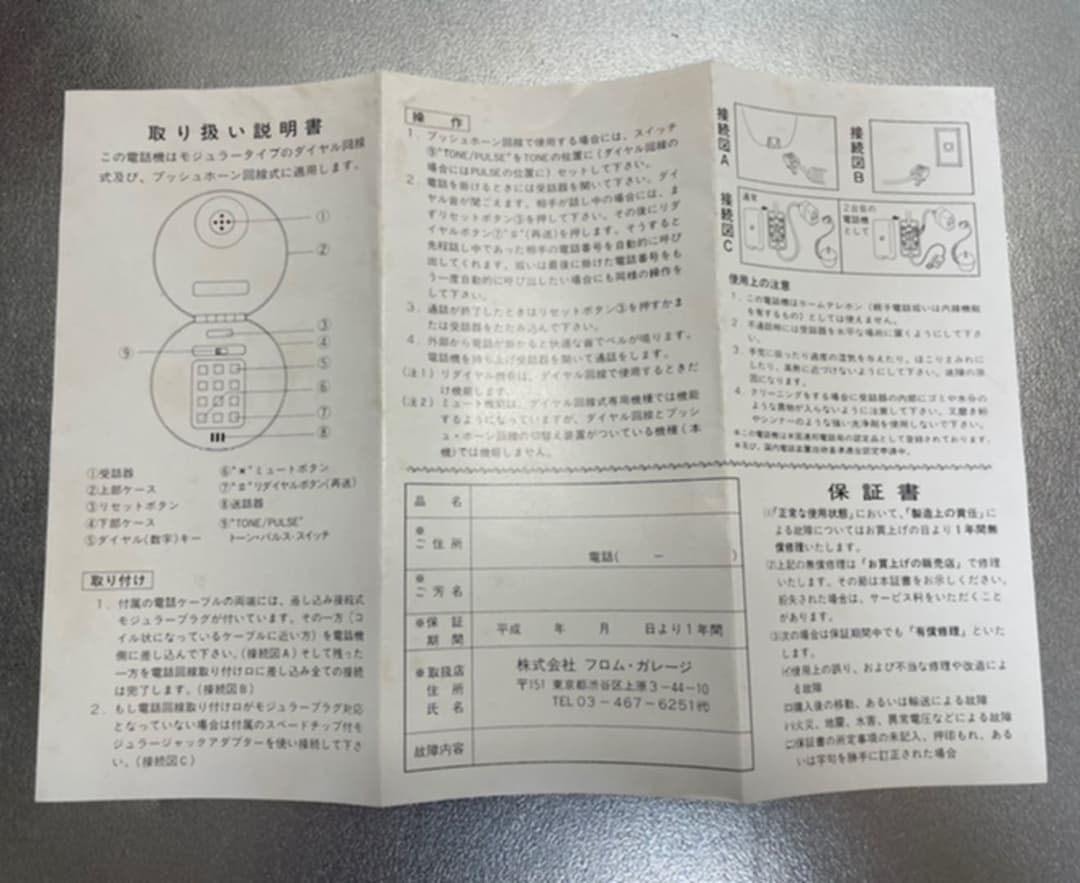 取り扱い説明書
この電話機はモジュラータイプのダイヤル回線
式及び、プッシュホーン回線式に適用します。
①
②
③
④
⑨
⑤
⑥
⑦
⑧
①受話器
②上部ケース
③リセットボタン
④下部ケース
⑤ダイヤル(数字)キー
⑥"✱"ミュートボタン
⑦"♯"リダイヤルボタン(再送)
⑧送話器
⑨"TONE/PULSE"
トーン・パルス・スイッチ
取り付け
1．付属の電話ケーブルの両端には、差し込み接続式
モジュラープラグが付いています。その一方(コ
イル状になっているケーブルに近い方)を電話機
側に差し込んで下さい。(接続図A)そして残った
一方を電話回線取り付け口に差し込み全ての接続
は完了します。(接続図B)
2．もし電話回線取り付け口がモジュラープラグ対応
となっていない場合は付属のスペードチップ付モ
ジュラージャックアダプターを使い接続して下さ
い。(接続図C)
操　作
1．プッシュホーン回線で使用する場合には、スイッチ
⑨"TONE/PULSE"をTONEの位置に(ダイヤル回線の
場合にはPULSEの位置に)セットして下さい。
2．電話を掛けるときには受話器を開いて下さい。ダイ
ヤル音が聞こえます。相手が話し中の場合には、ま
ずリセットボタン③を押して下さい。その後にリダ
イヤルボタン⑦"♯"(再送)を押します。そうすると
先程話し中であった相手の電話番号を自動的に呼び
出してくれます。或いは最後に掛けた電話番号をも
う一度自動的に呼び出したい場合にも同様の操作を
して下さい。
3．通話が終了したときはリセットボタン③を押すかま
たは受話器をたたみ込んで下さい。
4．外部から電話が掛かると快適な音でベルが鳴ります。
電話機を持ち上げ受話器を開いて通話をします。
(注1)リダイヤル機能は、ダイヤル回線で使用するときだ
け機能します。
(注2)ミュート機能は、ダイヤル回線式専用機種では機能
するようになっていますが、ダイヤル回線とプッシ
ュ・ホーン回線の切替え装置がついている機種(本
機)では機能しません。
接続図A
接続図B
接続図C
通常
2台目の
電話機
として
使用上の注意
1．この電話機はホームテレホン(親子電話或いは内線機能
を有するもの)としては使えません。
2．不通話時には受話器を水平な場所に置くようにして下さ
い。
3．手荒に扱ったり過度の湿気を与えたり、ほこりまみれに
したり、高熱に近づけないようにして下さい。故障の原
因になります。
4．クリーニングをする場合に受話器の内部にゴミや水分の
ような異物が入らないように注意して下さい。又磨き粉
やシンナーのような強い洗浄剤を使用しないで下さい。
※この電話機は米国連邦電話局の認定品として登録されております。
※及び、国内電話装置技術基準適合認定申請中。
品　名
※ご住所
電話(　　ー　　)
※ご芳名
※保証期間
平成　年　月　日より1年間
※取扱店
住所
氏名
株式会社 フロム・ガレージ
〒151 東京都渋谷区上原3－44－10
TEL 03－467－6251㈹
故障内容
保証書
(1)「正常な使用状態」において、「製造上の責任」に
よる故障についてはお買上げの日より1年間無
償修理いたします。
(2)上記の無償修理は「お買上げの販売店」で修理
いたします。その節は本証書をお示しください。
紛失された場合は、サービス料をいただくこと
があります。
(3)次の場合は保証期間中でも「有償修理」といた
します。
(イ)使用上の誤り、および不当な修理や改造によ
る故障
(ロ)購入後の移動、あるいは輸送による故障
(ハ)火災、地震、水害、異常電圧などによる故障
(ニ)保証書の所定事項の未記入、押印もれ、ある
いは字句を勝手に訂正された場合